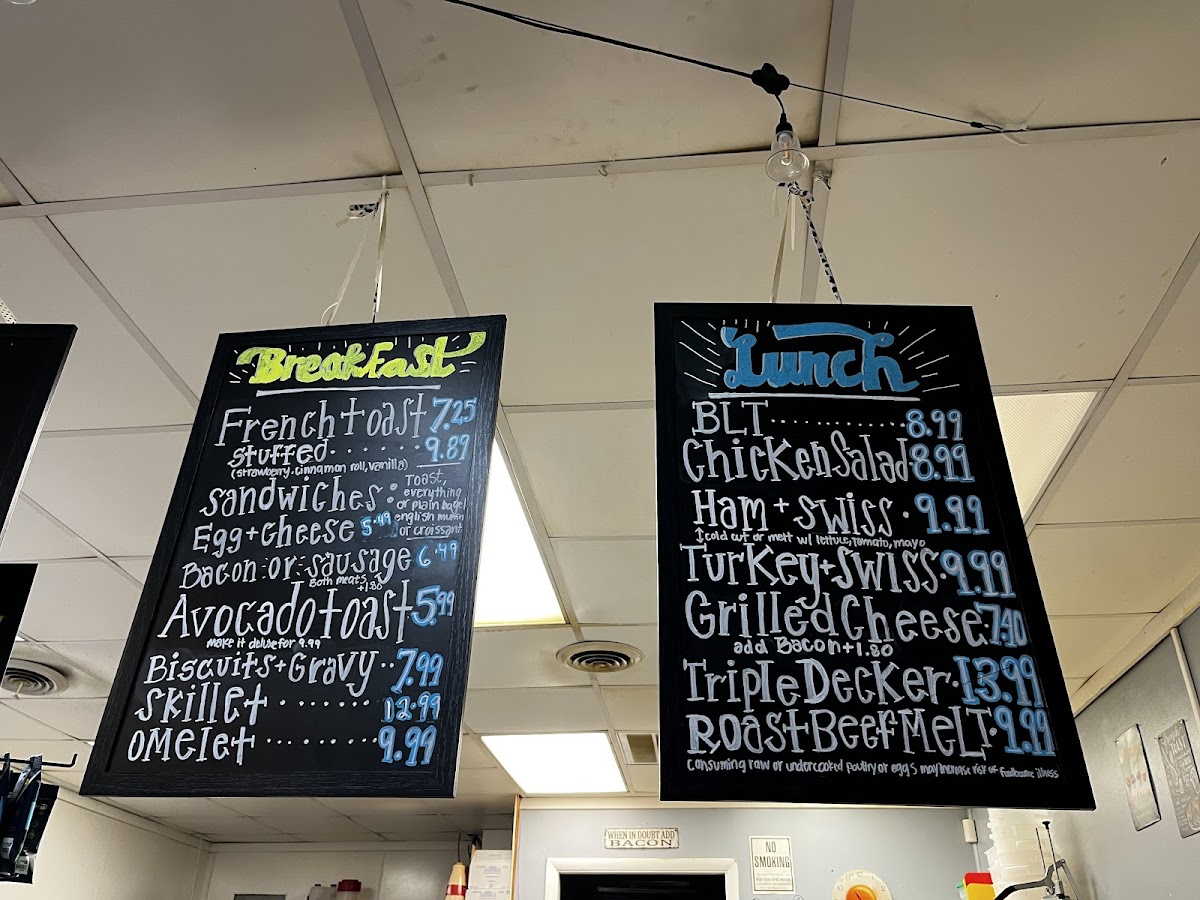 Breakfast
French toast 7.25
Stuffed. . . . . . 9.89
(Strawberry, cinnamon roll, vanilla)
Sandwiches:
Toast,
everything
or plain bagel
english muffin
or croissant
Egg + cheese 5.49
Bacon or sausage 6.49
Both meats
+1.80
Avocado toast. 5.99
make it deluxe for 9.99
Biscuits + Gravy . . 7.99
Skillet . . . . . . . 12.99
Omelet . . . . . . . . 9.99
Lunch
BLT . . . . . . . . . . . . 8.99
Chicken Salad 8.99
Ham + swiss . 9.99
↕cold cut or melt w/ lettuce, tomato, mayo
Turkey + swiss. 9.99
Grilled Cheese. 7.40
add Bacon +1.80
Triple Decker. 13.99
Roast Beef Melt. 9.99
Consuming raw or undercooked poultry or eggs may increase risk of foodborne illness
WHEN IN DOUBT ADD
BACON
NO
SMOKING